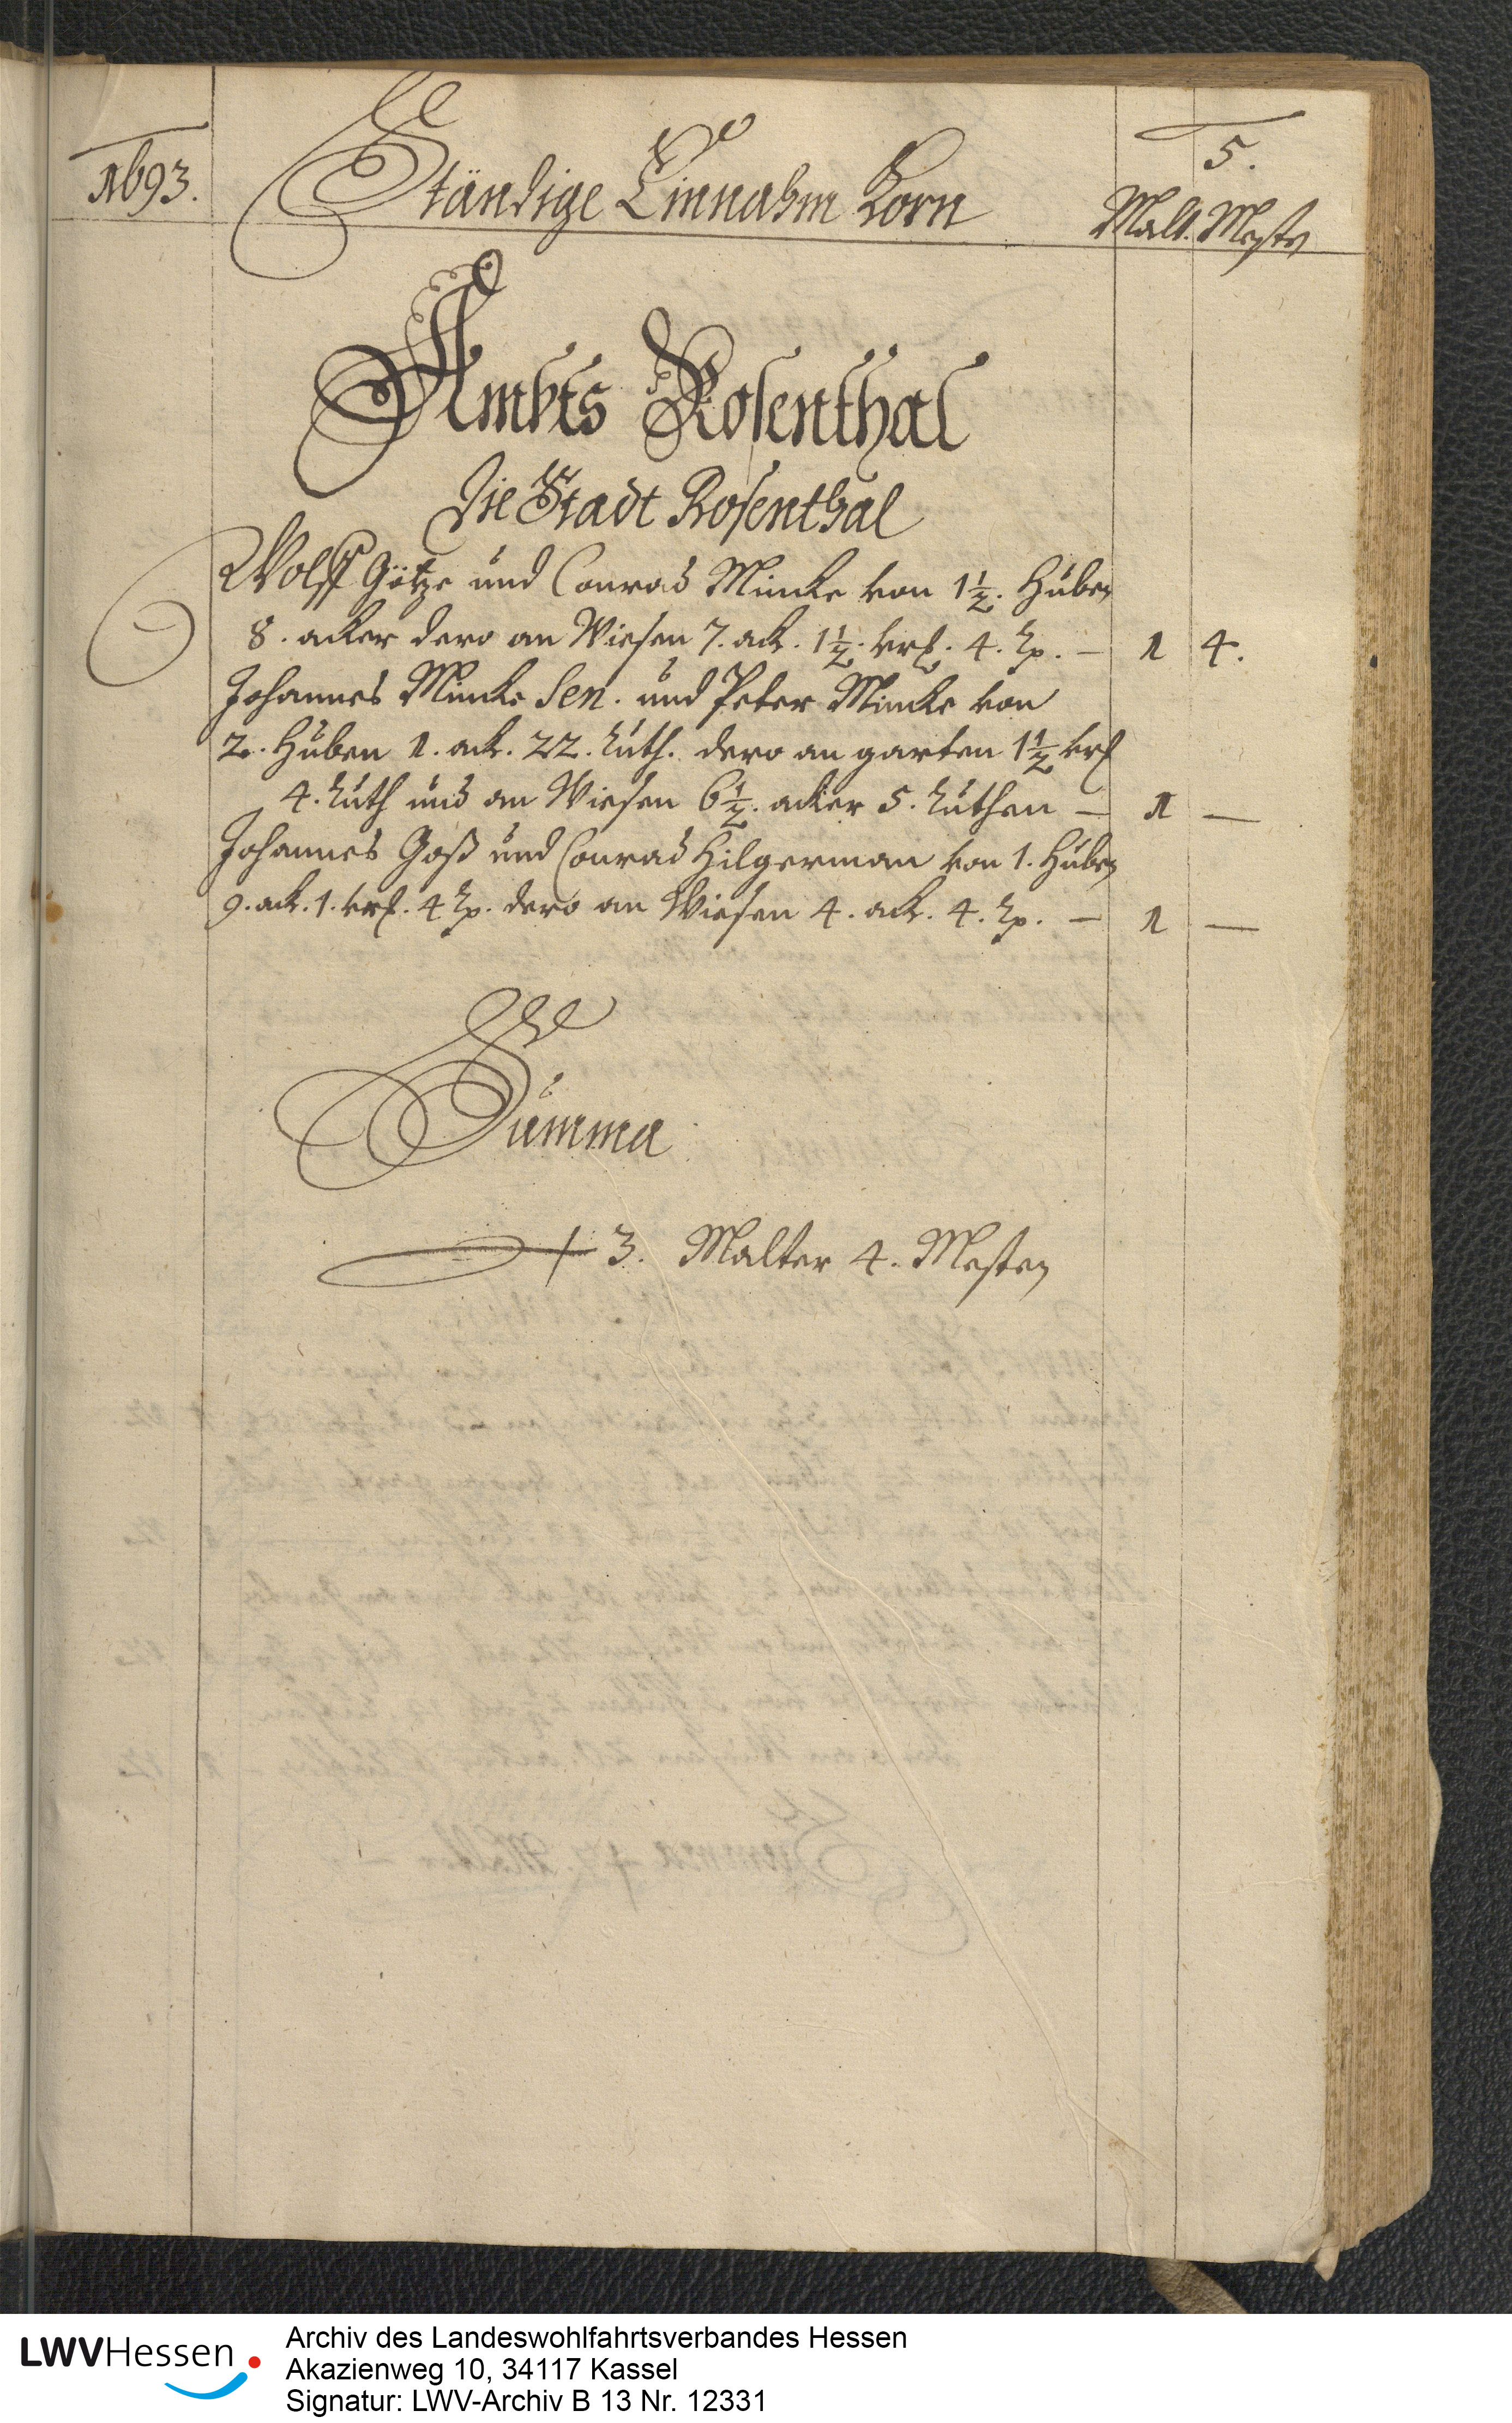 1693.
Ständige Einnahm Korn
5.
Malt. Meste
Ambts Rosenthal
Die Stadt Rosenthal
Wolff Götze und Conrad Mincke von 1½. Huben
8. acker dero an Wiesen 7. ack. 1½. vrt. 4. - 1 4.
Johannes Mincke Sen. und Peter Mincke von
2. Huben 1. ack. 22. Ruth. dero an garten 1½ vrt
4. Ruth und an Wiesen 6½. acker 5. Ruthen - 1 -
Johannes Goß und Conrad Hilgerman von 1. Huben
9. ack. 1. vrt. 4 dero an Wiesen 4. ack. 4. - 1 -
Summa
3. Malter 4. Mesten
LWVHessen
Archiv des Landeswohlfahrtsverbandes Hessen
Akazienweg 10, 34117 Kassel
Signatur: LWV-Archiv B 13 Nr. 12331